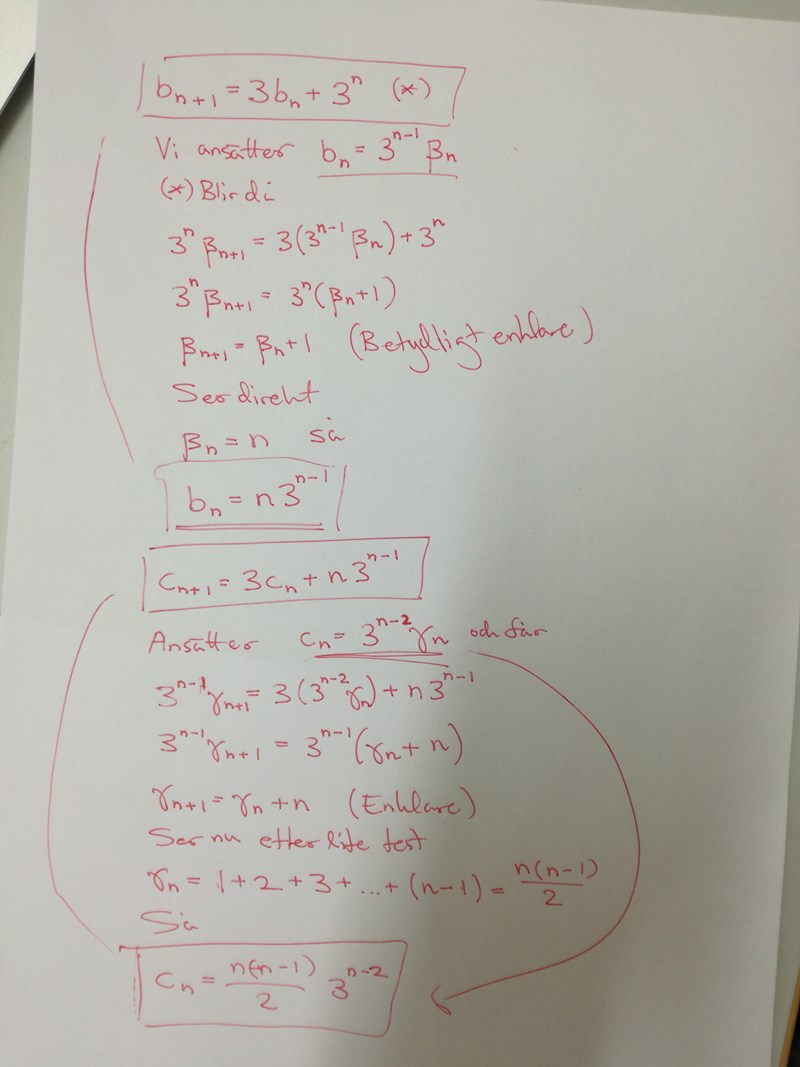 bₙ₊₁ = 3bₙ + 3ⁿ (*)
Vi ansätter bₙ = 3ⁿ⁻¹ βₙ
(*) Blir di
3ⁿ βₙ₊₁ = 3(3ⁿ⁻¹ βₙ) + 3ⁿ
3ⁿ βₙ₊₁ = 3ⁿ(βₙ+1)
βₙ₊₁ = βₙ+1 (Betydligt enklare)
Ser direkt
βₙ = n så
bₙ = n 3ⁿ⁻¹
cₙ₊₁ = 3cₙ + n 3ⁿ⁻¹
Ansätter cₙ = 3ⁿ⁻² γₙ och får
3ⁿ⁻¹ γₙ₊₁ = 3(3ⁿ⁻² γₙ) + n 3ⁿ⁻¹
3ⁿ⁻¹ γₙ₊₁ = 3ⁿ⁻¹(γₙ + n)
γₙ₊₁ = γₙ + n (Enklare)
Ser nu efter lite test
γₙ = 1+2+3+...+(n-1) = n(n-1)/2
Så
cₙ = n(n-1)/2 3ⁿ⁻²